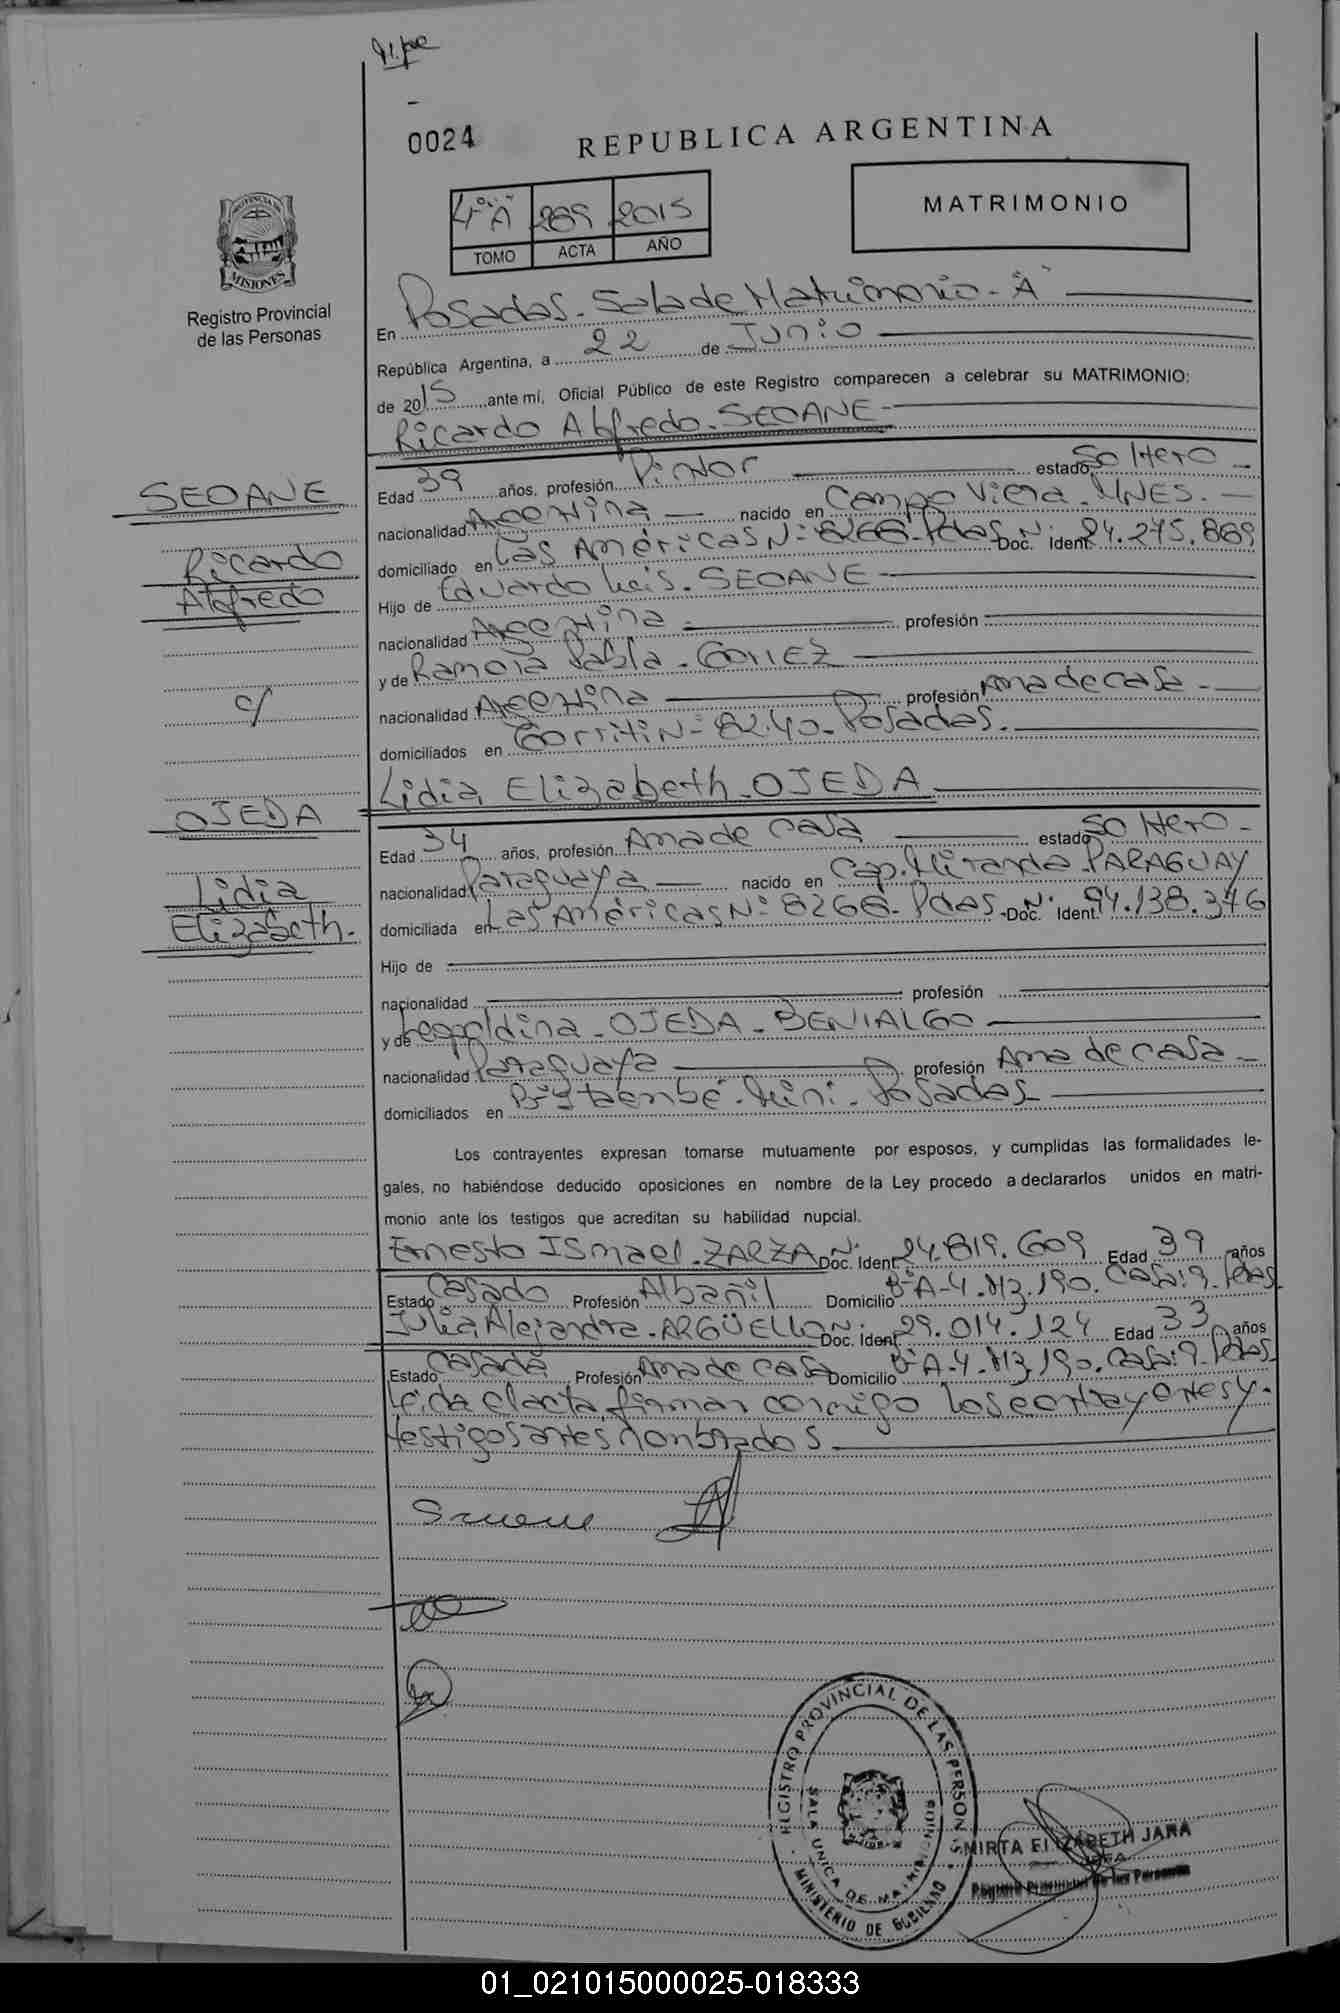 0024
REPUBLICA ARGENTINA
4º "A" 269 2015
TOMO ACTA AÑO
MATRIMONIO
PROVINCIA DE
MISIONES
Registro Provincial
de las Personas
En Posadas - Sala de Matrimonio - "A"
República Argentina, a 22 de Junio
de 2015 ante mí, Oficial Público de este Registro comparecen a celebrar su MATRIMONIO:
Ricardo Alfredo. SEOANE
SEOANE
Ricardo
Alfredo
c/
OJEDA
Lidia
Elizabeth.
Edad 39 años, profesión Pintor estado soltero
nacionalidad Argentina nacido en Campo Viera. MNES.
domiciliado en Las Américas Nº 8266 - Pdas Doc. Ident. Nº 24.275.869
Hijo de Eduardo Luis. SEOANE
nacionalidad Argentina profesión
y de Ramona Pabla - GOMEZ
nacionalidad Argentina profesión Ama de casa
domiciliados en Gorriti Nº 8240 - Posadas.
Lidia Elizabeth - OJEDA
Edad 34 años, profesión Ama de casa estado soltero
nacionalidad Paraguaya nacido en Cap. Miranda - PARAGUAY
domiciliada en Las Américas Nº 8266 - Pdas - Doc. Ident. Nº 94.138.376
Hijo de
nacionalidad profesión
y de Leopoldina - OJEDA - BENIALGO
nacionalidad Paraguaya profesión Ama de casa
domiciliados en Bº Itaembé - Miní - Posadas
Los contrayentes expresan tomarse mutuamente por esposos, y cumplidas las formalidades le-
gales, no habiéndose deducido oposiciones en nombre de la Ley procedo a declararlos unidos en matri-
monio ante los testigos que acreditan su habilidad nupcial.
Ernesto Ismael - ZARZA Doc. Ident. Nº 24.819.609 Edad 39 años
Estado casado Profesión Albañil Domicilio Bº A-4 - Mz. 190. Casa: 9 - Pdas
Julia Alejandra - ARGÜELLO Doc. Ident. Nº 29.014.124 Edad 33 años
Estado casada Profesión Ama de casa Domicilio Bº A-4 - Mz. 190. Casa: 9 - Pdas.
Leída el acta, firman conmigo los contrayentes y
testigos antes nombrados
REGISTRO PROVINCIAL DE LAS PERSONAS
SALA UNICA DE MATRIMONIOS
MINISTERIO DE GOBIERNO
MIRTA ELIZABETH JARA
JEFA
Registro Provincial de las Personas
01_021015000025-018333